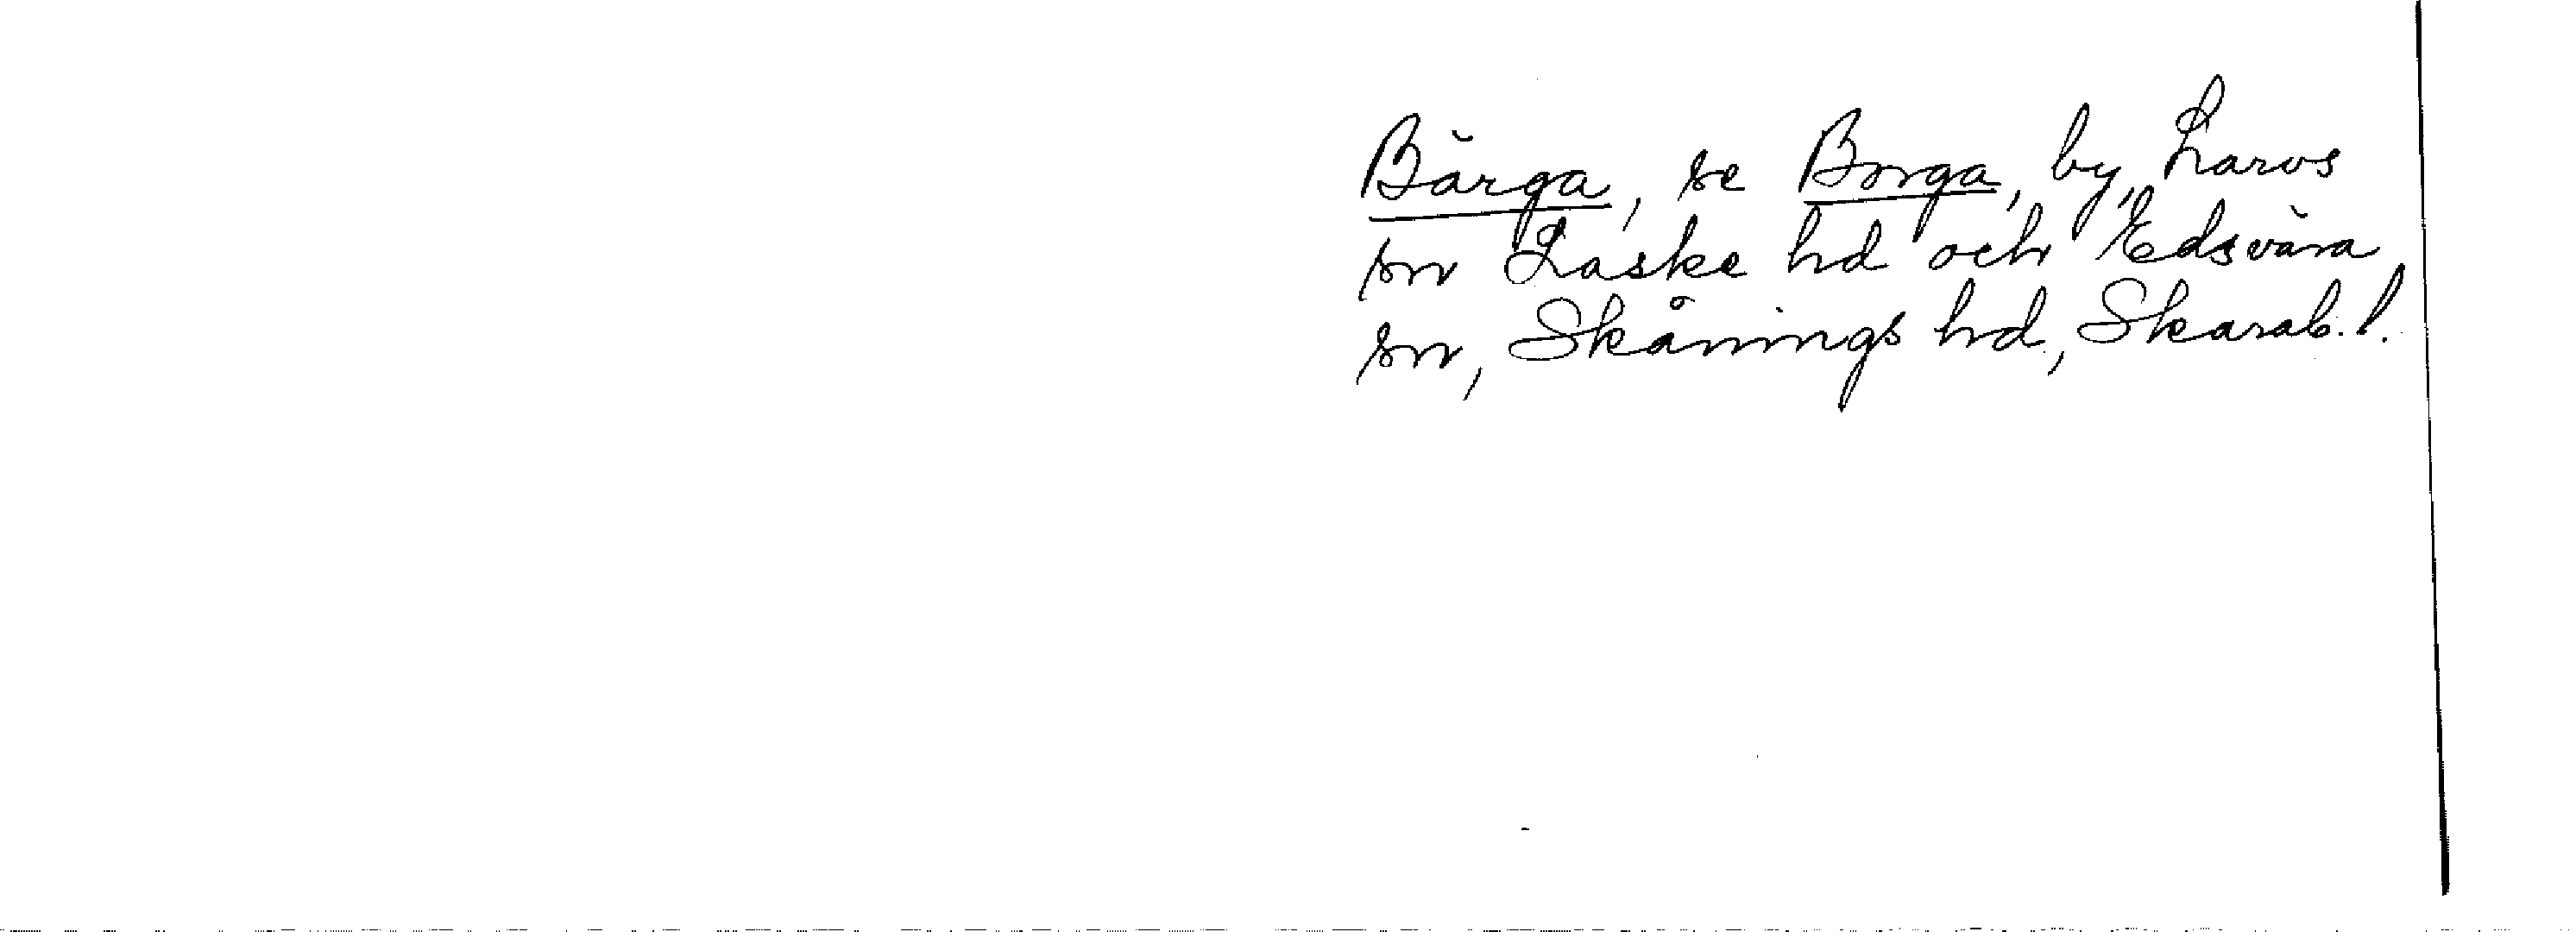 Bärga, se Borga, by, Larvs
sn Laske hd och Edsvära
sn, Skånings hd, Skarab. l.